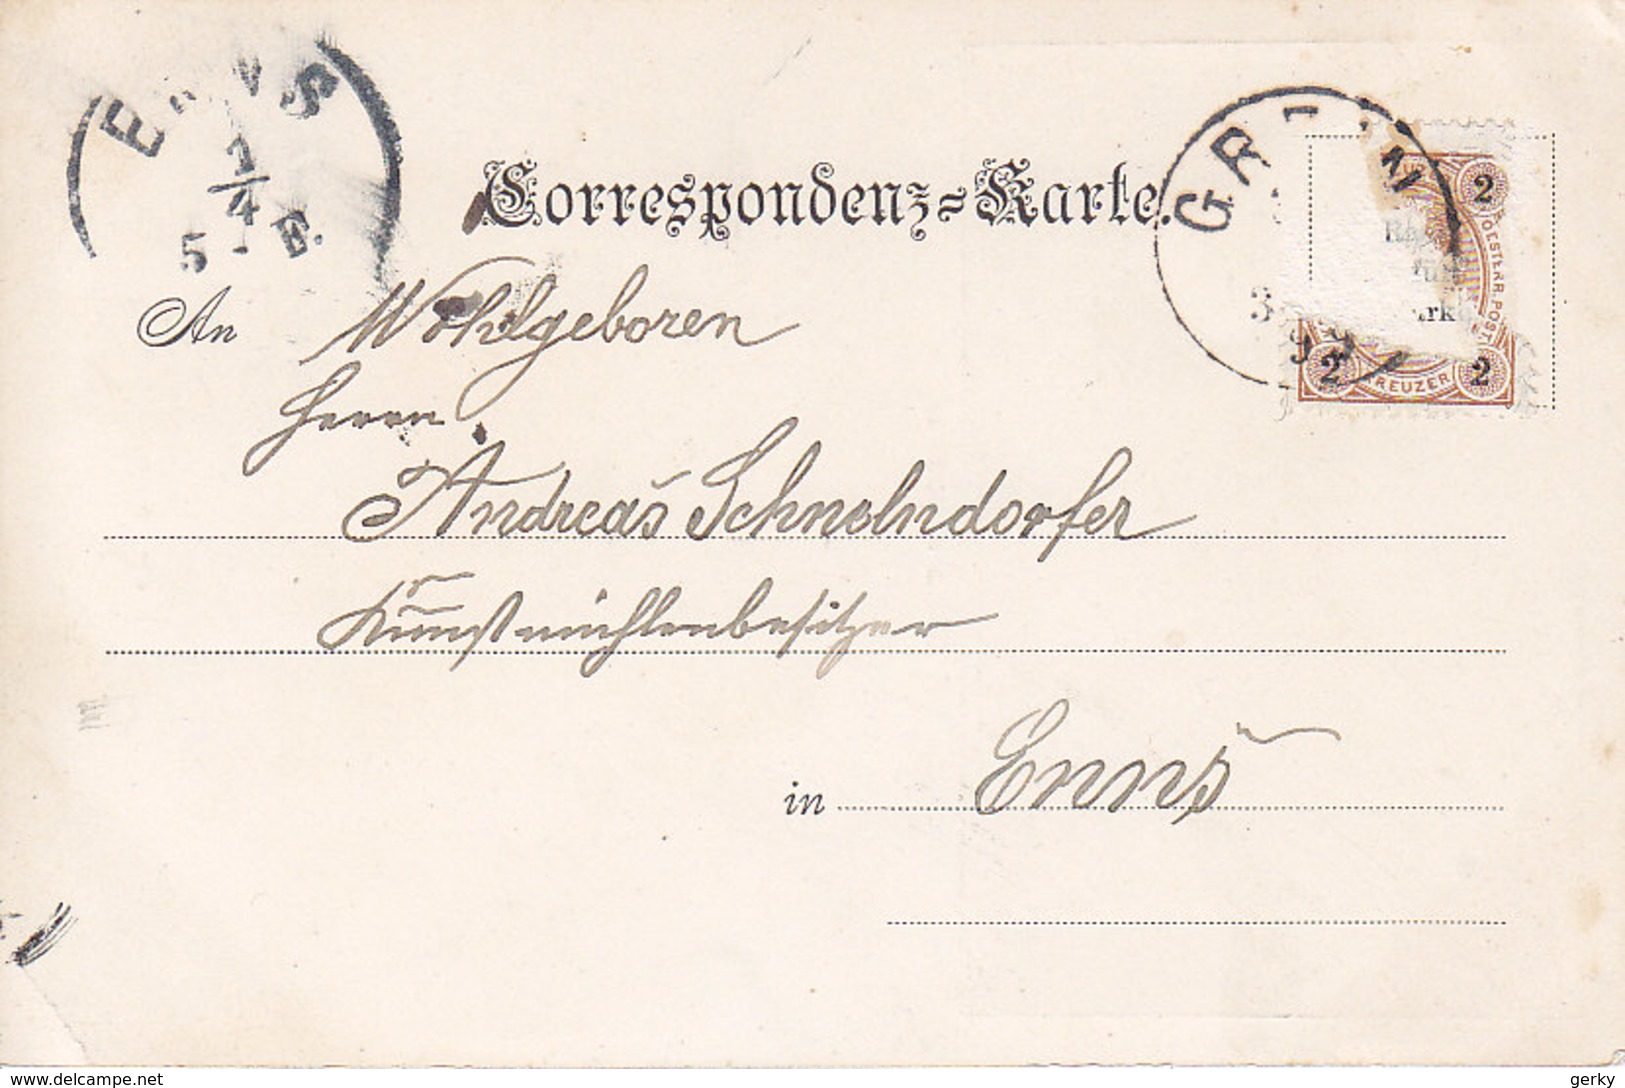 ENNS
1/4
5 - E.
Correspondenz=Karte.
GREIN
3
99
2
OESTERR. POST
2 KREUZER 2
An Wohlgeboren
Herrn
Andreas Schnelndorfer
Kunstmühlenbesitzer
in Enns
delcampe.net
gerky